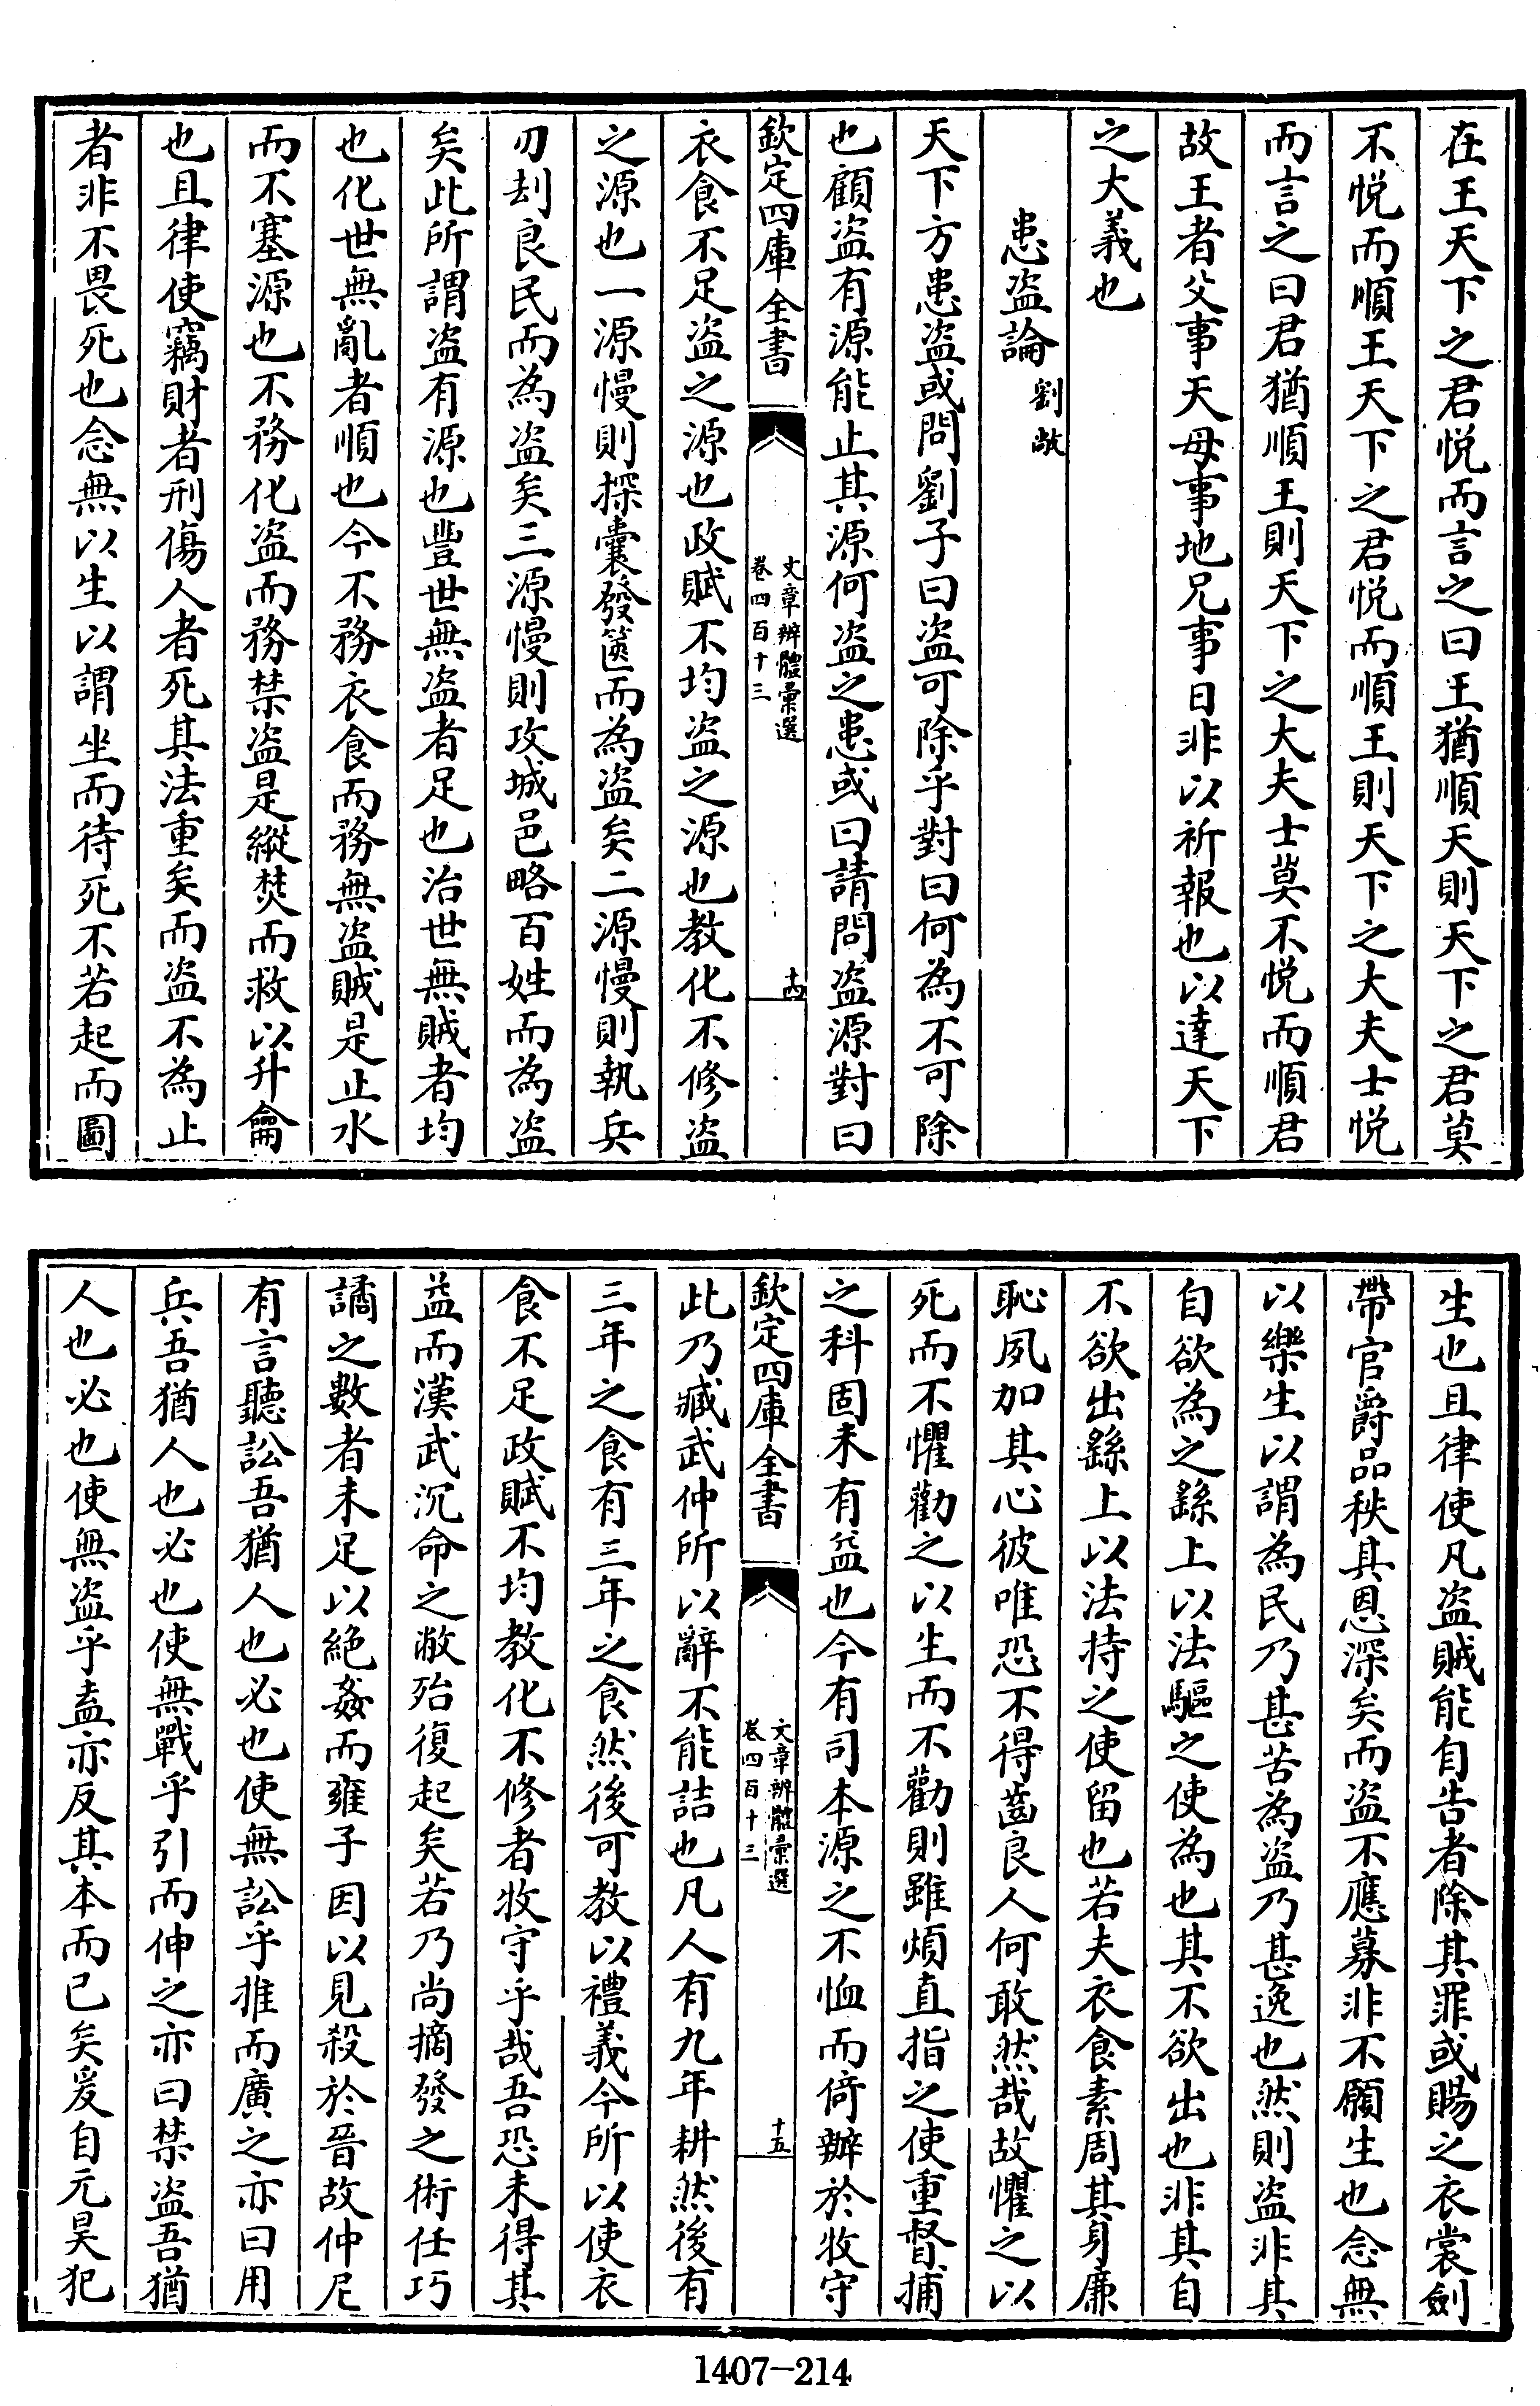 在王天下之君悦而言之曰王猶順天則天下之君莫
不悦而順王天下之君悦而順王則天下之大夫士悦
而言之曰君猶順王則天下之大夫士莫不悦而順君
故王者父事天母事地兄事日非以祈報也以達天下
之大義也
患盗論 劉敞
天下方患盗或問劉子曰盗可除乎對曰何為不可除
也顧盗有源能止其源何盗之患或曰請問盗源對曰
欽定四庫全書
文章辨體彙選
卷四百十三
十四
衣食不足盗之源也政賦不均盗之源也教化不修盗
之源也一源慢則探囊發篋而為盗矣二源慢則執兵
刃刦良民而為盗矣三源慢則攻城邑略百姓而為盗
矣此所謂盗有源也豐世無盗者足也治世無賊者均
也化世無亂者順也今不務衣食而務無盗賊是止水
而不塞源也不務化盗而務禁盗是縱焚而救以升龠
也且律使竊財者刑傷人者死其法重矣而盗不為止
者非不畏死也念無以生以謂坐而待死不若起而圖
生也且律使凡盗賊能自告者除其罪或賜之衣裳劍
帶官爵品秩其恩深矣而盗不應募非不願生也念無
以樂生以謂為民乃甚苦為盗乃甚逸也然則盗非其
自欲為之繇上以法驅之使為也其不欲出也非其自
不欲出繇上以法持之使留也若夫衣食素周其身廉
恥夙加其心彼唯恐不得齒良人何敢然哉故懼之以
死而不懼勸之以生而不勸則雖煩直指之使重督捕
之科固未有益也今有司本源之不恤而倚辦於牧守
欽定四庫全書
文章辨體彙選
卷四百十三
十五
此乃臧武仲所以辭不能詰也凡人有九年耕然後有
三年之食有三年之食然後可教以禮義今所以使衣
食不足政賦不均教化不修者牧守乎哉吾恐未得其
益而漢武沉命之敝殆復起矣若乃尚摘發之術任巧
譎之數者未足以絶姦而雍子因以見殺於晉故仲尼
有言聽訟吾猶人也必也使無訟乎推而廣之亦曰用
兵吾猶人也必也使無戰乎引而伸之亦曰禁盗吾猶
人也必也使無盗乎盍亦反其本而已矣爰自元昊犯
1407-214